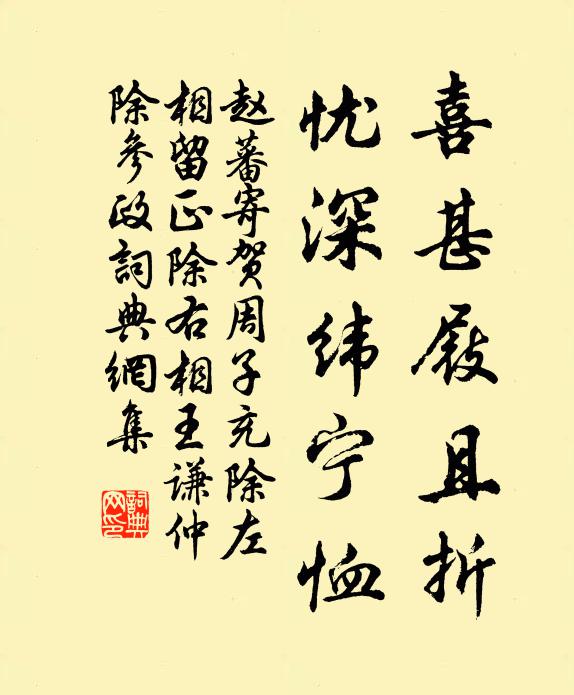 喜甚屐且折
忧深纬宁恤
赵蕃寄贺周子充除左
相留正除右相王谦仲
除参政詞典網集
詞典网印